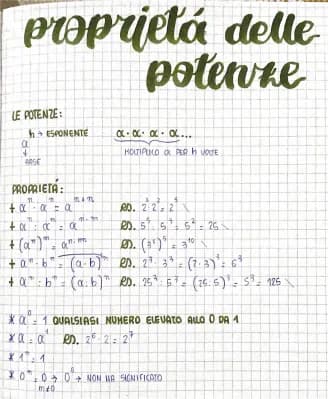 proprietá delle
potenze
LE POTENZE:
n → ESPONENTE a·a·a·a...
a
↓
BASE
MOLTIPLICO a PER n VOLTE
PROPRIETÀ:
+ aⁿ · aᵐ = aⁿ⁺ᵐ es.
+ aⁿ : aᵐ = aⁿ⁻ᵐ es. 5⁵ : 5³ = 5² = 25
+ (aⁿ)ᵐ = aⁿ·ᵐ es. (3²)⁵ = 3¹⁰
+ aⁿ · bⁿ = (a·b)ⁿ es. 2³ · 3³ = (2·3)³ = 6³
+ aⁿ : bⁿ = (a:b)ⁿ es. 25³ : 5³ = (25:5)³ = 5³ = 125
* a⁰ = 1 QUALSIASI NUMERO ELEVATO ALLO 0 DA 1
* a = a¹ es. 2⁶ · 2 = 2⁷
* 1ⁿ = 1
* 0ⁿ = 0 → 0⁰ → NON HA SIGNIFICATO
n≠0